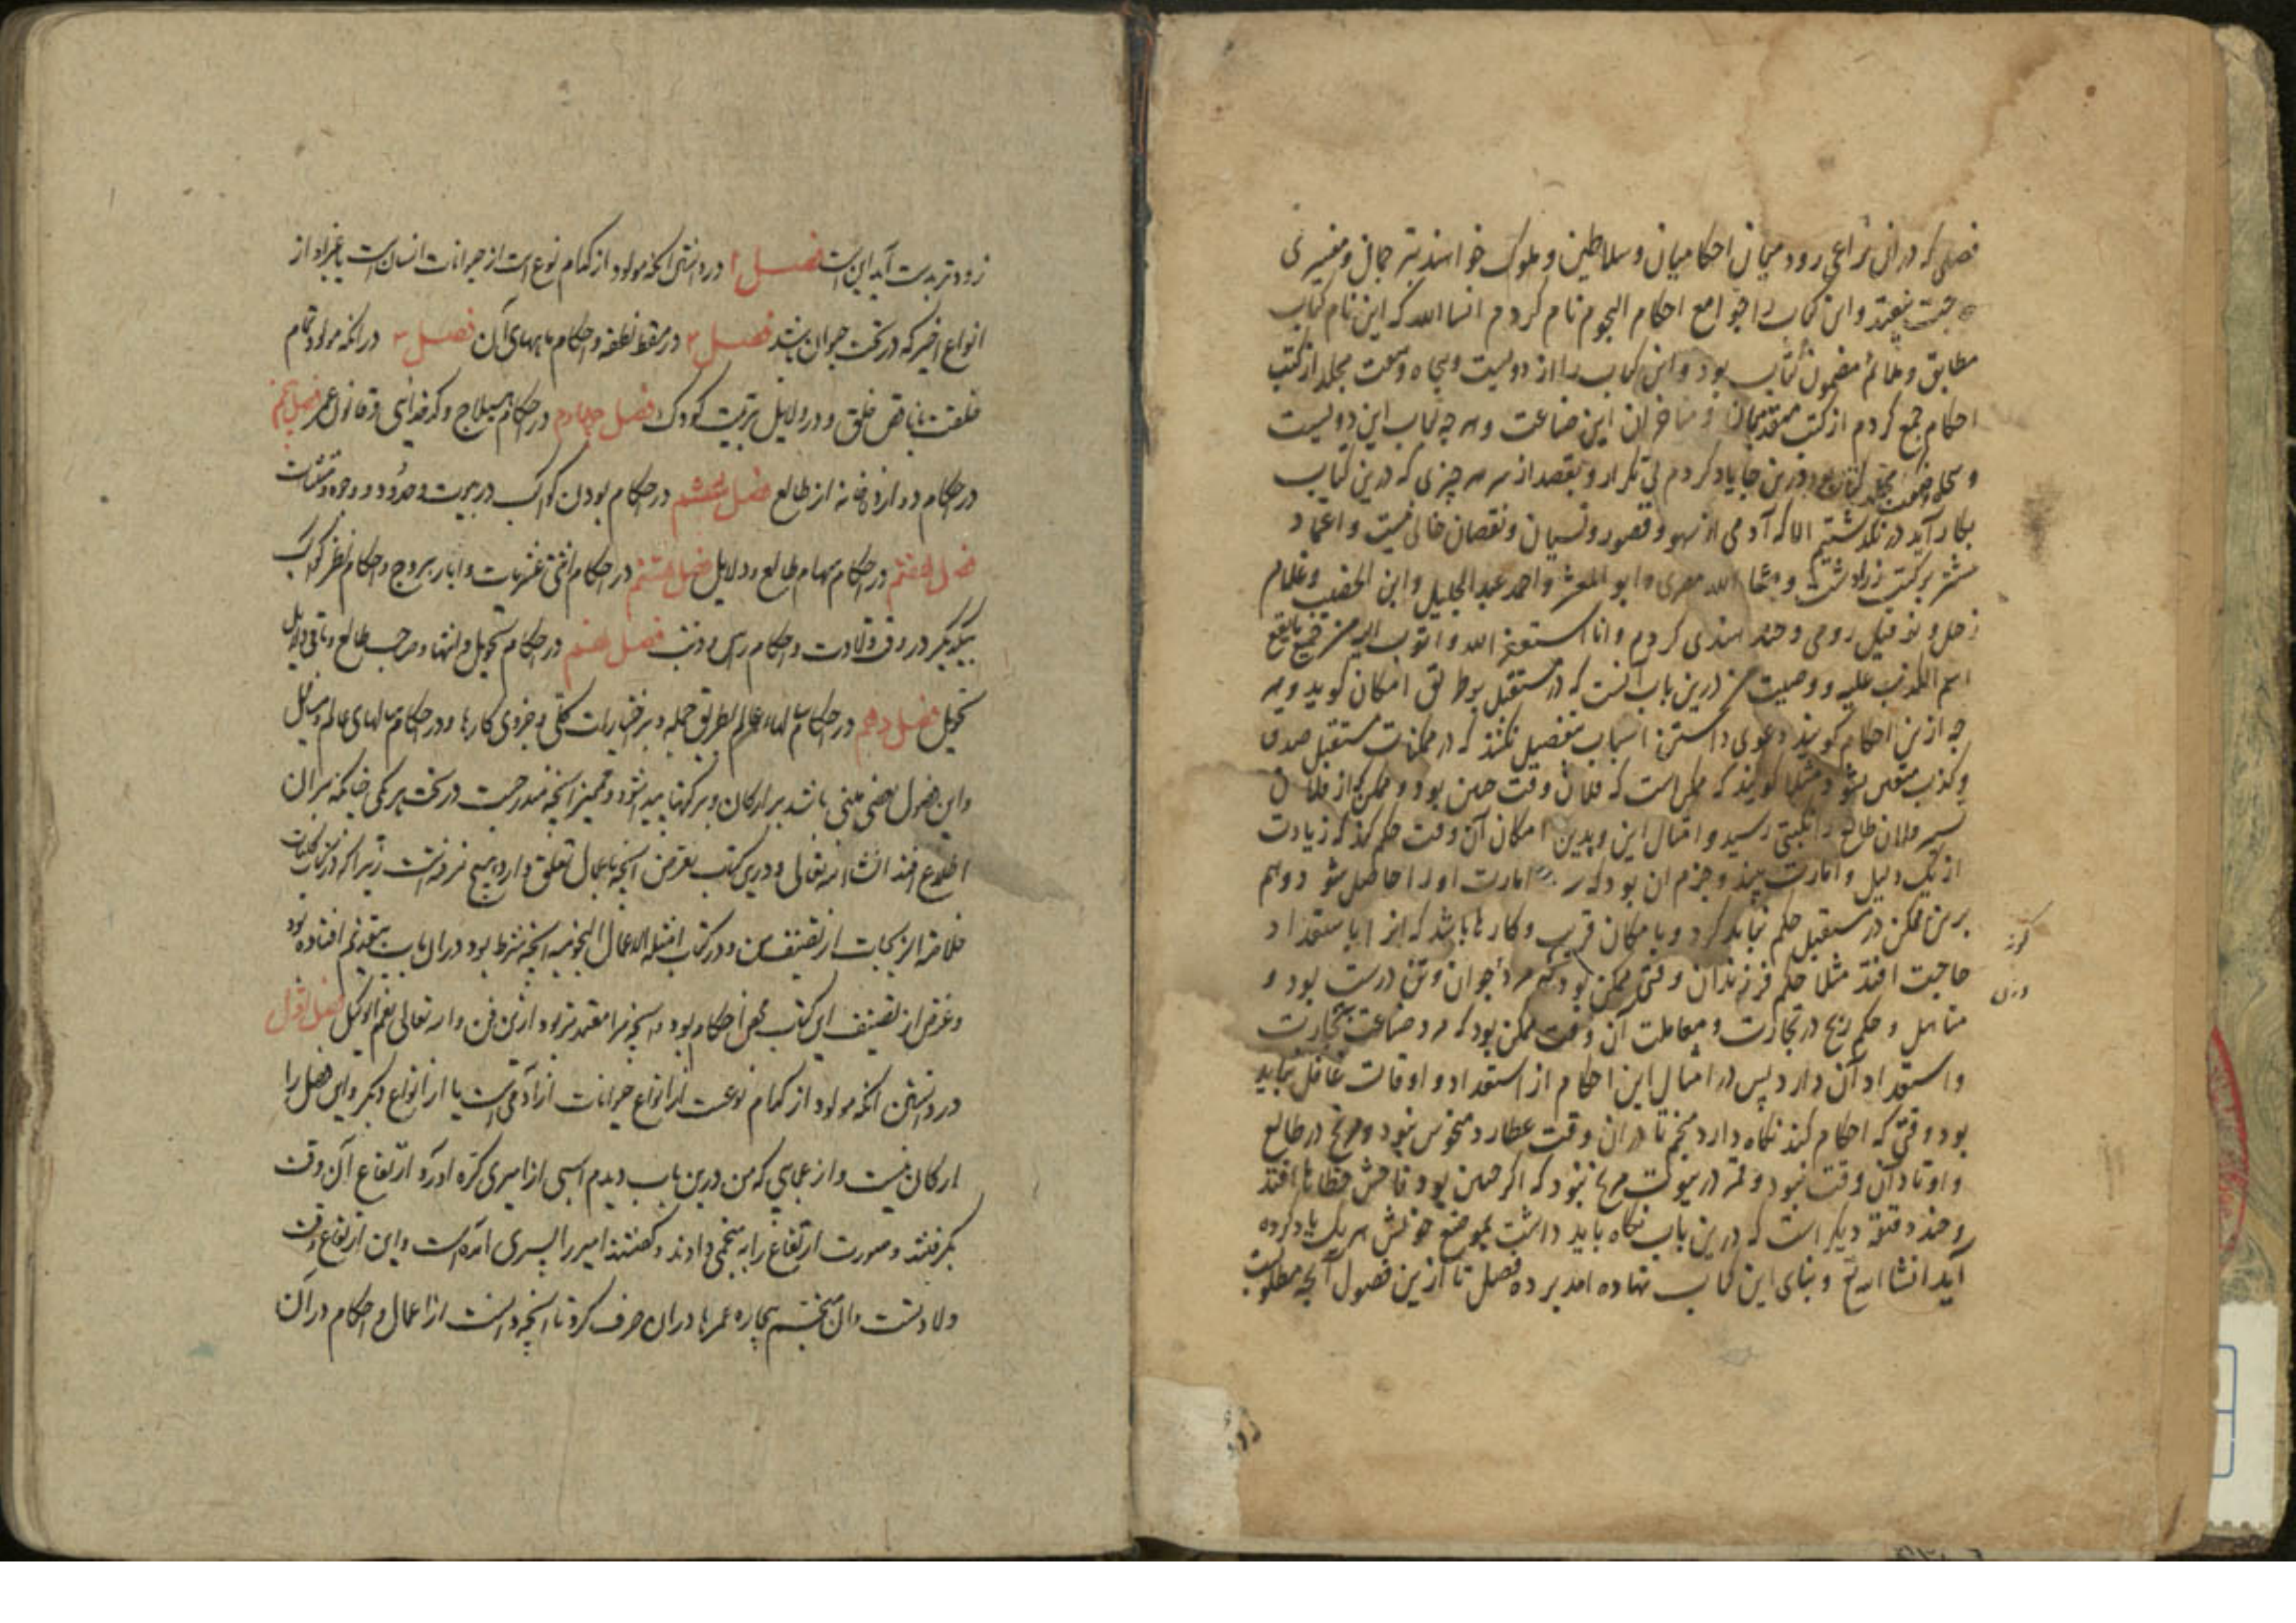 فصلی که در ان نزاعی رود میان احکامیان و سلاطین و ملوک خواهند بترجمان و مفسری
حاجت نیفتد و این کتاب را جوامع احکام النجوم نام کردم انشا الله که این نام کتاب
مطابق و ملائم مضمون کتاب بود و این کتاب را از دویست و پنجاه و هفت مجلد از کتب
احکام جمع کردم از کتب متقدمان و متاخران این صناعت و هر چه لباب این دویست
و پنجاه و هفت مجلد کتاب بود درین جا یاد کردم بی تکرار و بقصد از سر هر چیزی که درین کتاب
بکار آید در نگذشتم الا که آدمی از سهو و قصور و نسیان و نقصان خالی نیست و اعتماد
بیشتر بر کتب زرادشت و ما شا الله مصری و ابو المعشر و احمد عبد الجلیل و ابن الخصیب و غلام
زحل و نوفیل رومی و هندی کردم و انا استغفر الله و اتوب الیه من جمیع ما یقع
اسم الذنب علیه و وصیت من درین باب آنست که در مستقبل بر طریق امکان گوید و هر
چه ازین احکام گویند دعوی دانستن اسباب بتفصیل نکنند که در ممکنات مستقبل صدق
و کذب متعین نشود مثلا گویند که ممکن است که فلان وقت چنین بود و ممکن که از فلان
تسییر فلان طالع را نکبتی رسد و امثال این و بدین امکان آن وقت حکم کند که زیادت
از یک دلیل و امارت بیند و جزم ان بود که سه امارت او را حاصل شود و هم
برین ممکن در مستقبل حکم نباید کرد و با مکان قریب و کارها باشد که انرا باستعداد
حاجت افتد مثلا حکم فرزندان وقتی ممکن بود که مرد جوان و تن درست بود و
متاهل و حکم ربح در تجارت و معاملت آن وقت ممکن بود که مرد صناعت تجارت
و استعداد آن دارد پس در امثال این احکام از استعداد و اوقات غافل نباید
بود و وقتی که احکام کند نگاه دارد منجم تا در ان وقت عطارد منحوس نبود و مریخ در طالع
و اوتاد آن وقت نبود و قمر در بیوت مریخ نبود که اگر چنین بود فاحش خطاها افتد
و چند دقیقه دیگر است که درین باب نگاه باید داشت بموضع خویش هر یک یاد کرده
آید انشا الله تع و بنای این کتاب نهاده امد بر ده فصل تا ازین فصول آنچه مطلوبست
زودتر بدست آید این است فصل ۱ در دانستن انکه مولود از کدام نوع است از حیوانات انسان است یا غیر او از
انواع اخیر که در تحت حیوان باشد فصل ۲ در مسقط نطفه و احکام ماههای آن فصل ۳ در انکه مولود تمام
خلقت یا ناقص خلق و در دلایل تربیت کودک فصل چهارم در احکام هیلاج و کدخدائی و قانون عمر فصل پنجم
در احکام دوازده خانه از طالع فصل ششم در احکام بودن کواکب در بیوت و حدود و وجوه و مثلثات
فصل هفتم در احکام سهام طالع و دلایل فصل هشتم در احکام اثنی عشریات و ابار بروج و احکام نظر کواکب
بیکدیگر در وقت ولادت و احکام راس و ذنب فصل نهم در احکام تحویل و انتها و صاحب طالع و باقی دلایل
تحویل فصل دهم در احکام سالهاء عالم بطریق جمله و بر اختیارات کلی و جزوی کارها و در احکام سالهای عالم و مسایل
و این فصول بعضی مبنی باشد بر ارکان و بر کرتها پدید شود و تمییز انچه مندرجست در تحت هر یکی چنانکه بران
اطلاع افتد انشاء الله تعالی و درین کتب تعرض انچه باعمال تعلق دارد هیچ نرفتست زیرا که در کتاب
خلاصة الزیجات از تصنیف من و در کتاب امثلة الاعمال النجومیه انچه شرط بود در ان باب بتقدیم افتاده بود
و غرض از تصنیف این کتب محض احکام بود هر انچه مرا معتمدتر بود ازین فن و الله تعالی نعم الوکیل فصل اول
در دانستن انکه مولود از کدام نوعست از انواع حیوانات از آدمی است یا از انواع دیگر و این فصل را
ارکان نیست و از عجایبی که من درین باب دیدم اسبی از امیری کره آورد و ارتفاع آن وقت
بگرفتند و صورت ارتفاع را به منجمی دادند و گفتند امیر را پسری آمده است و این ارتفاع وقت
ولادتست و ان منجم بیچاره عمرها در ان صرف کرد تا انچه دانست از اعمال و احکام در آن